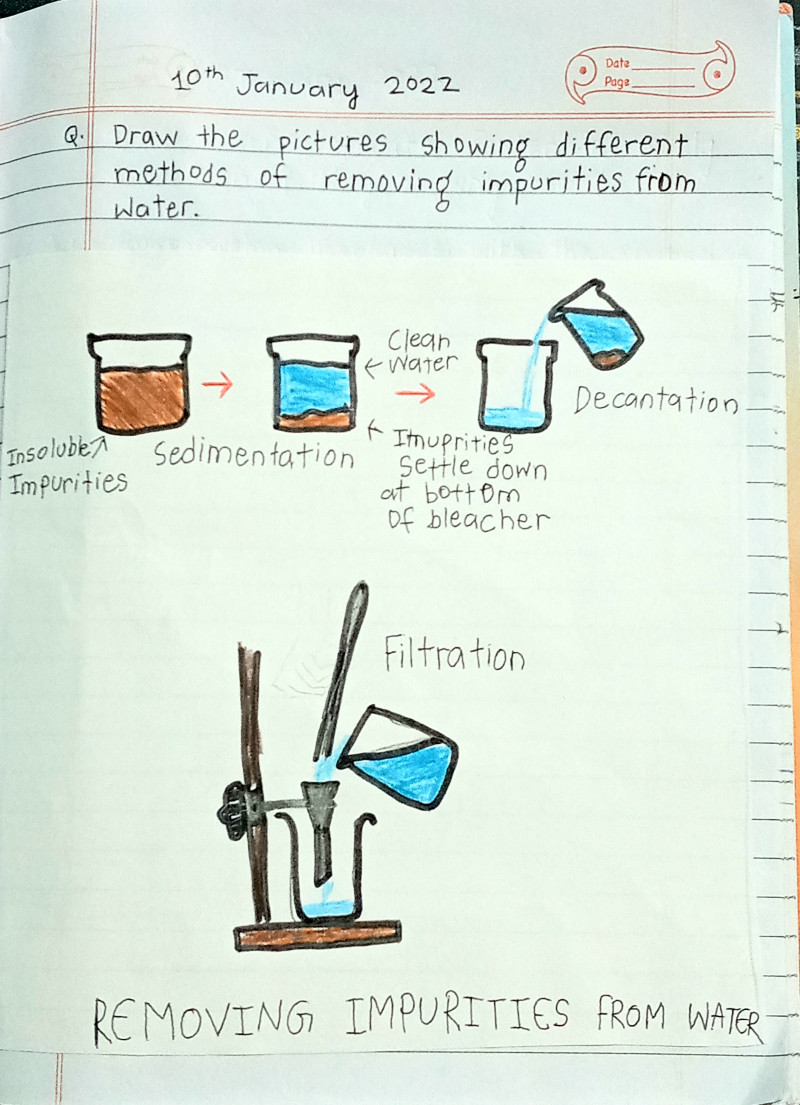 10th January 2022
Date
Page
Q. Draw the pictures showing different
methods of removing impurities from
Water.
Clean
Water
Decantation
Insoluble
Impurities
Sedimentation
Imuprities
Settle down
at bottom
Of bleacher
Filtration
REMOVING IMPURITIES FROM WATER